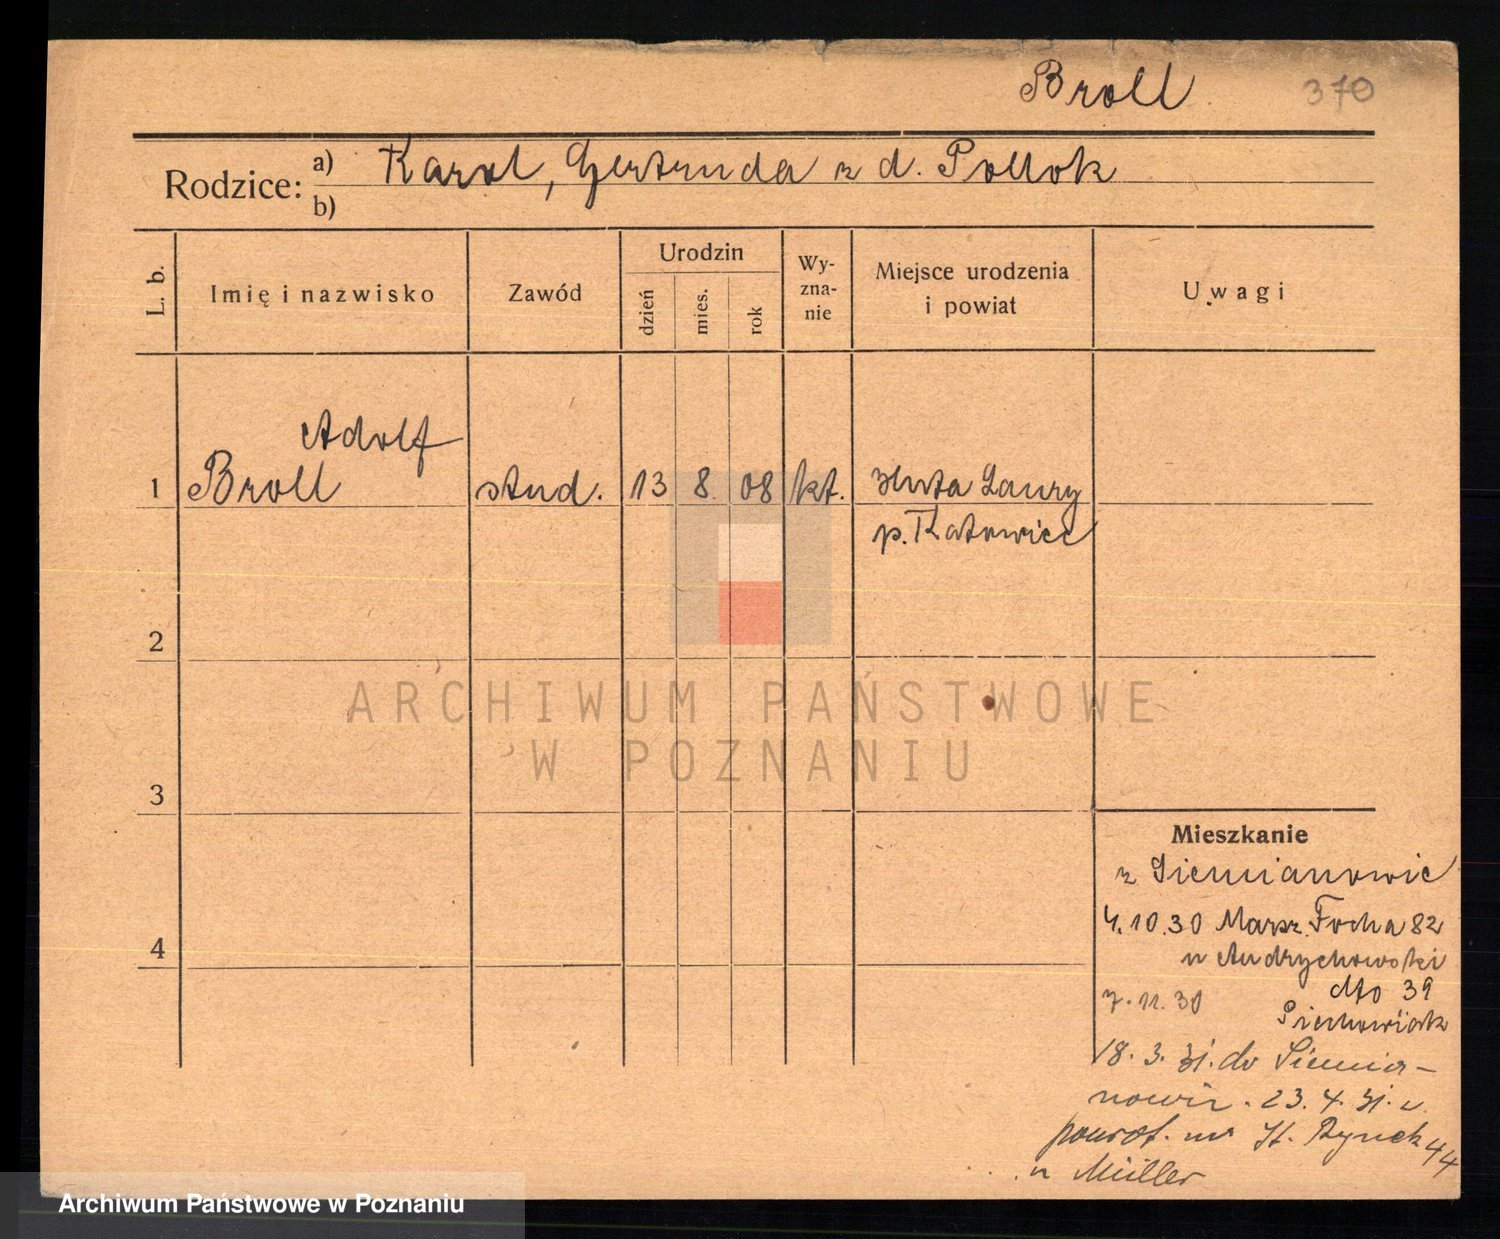 Broll 370
Rodzice: a) Karol, Gertruda z d. Pollok
b)
L. b.
Imię i nazwisko
Zawód
Urodzin
dzień
mies.
rok
Wy-
zna-
nie
Miejsce urodzenia
i powiat
Uwagi
Adolf
1 Broll stud. 13 8 08 kt. Huta Laury
p. Katowice
2
ARCHIWUM PAŃSTWOWE
W POZNANIU
3
Mieszkanie
z Siemianowic
4.10.30 Marsz. Focha 82
u Andrychowski
4
7.11.30 dto 39
Piechowiak
18.3.31. do Siemia-
nowic. 23.4.31. z
powrot. na St. Rynek 44
u Müller
Archiwum Państwowe w Poznaniu